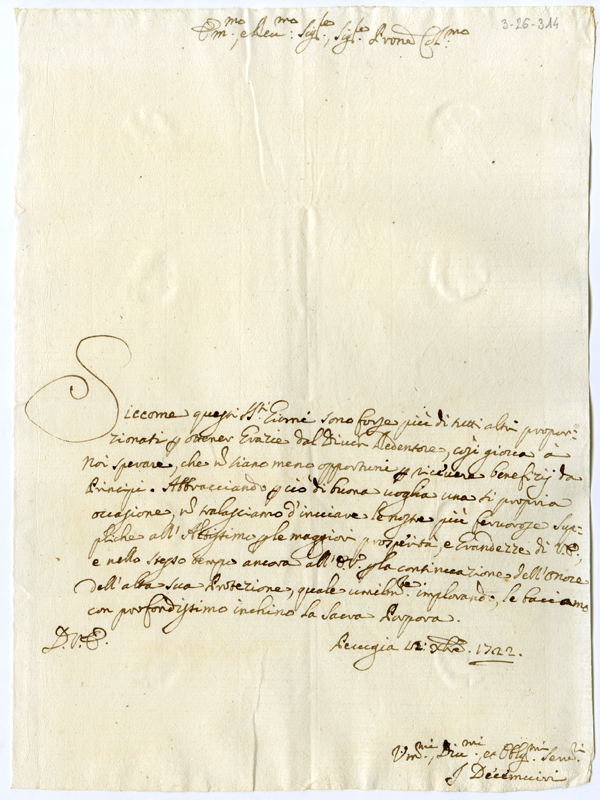 3-26-314
Em.mo, e Reu.mo Sig.re, Sig.re Prone Col.mo
Siccome questi S.ti Giorni sono forse più di tutti altri propor=
zionati p ottener Grazie dal Divin Redentore, così giova à
Noi sperare, che ñ siano meno opportuni p ricevere benefizij da
Principi. Abbracciando p ciò di buona voglia una sì propria
occasione, ñ tralasciamo d'inviare le nostre più fervorose Sup=
pliche all'Altissimo p le maggiori prosperità, e Grandezze di V.E.,
e nello stesso tempo ancora all'E.V. p la continuazione dell'Onore
dell'alta Sua Protezione, quale umilm.te implorando, le baciamo
con profondissimo inchino la Sacra Porpora.
D.V.E. Perugia 12: Xbre. 1722.
V.mi, Diu.mi, et Oblig.mi Seru.ri
J Decemuiri